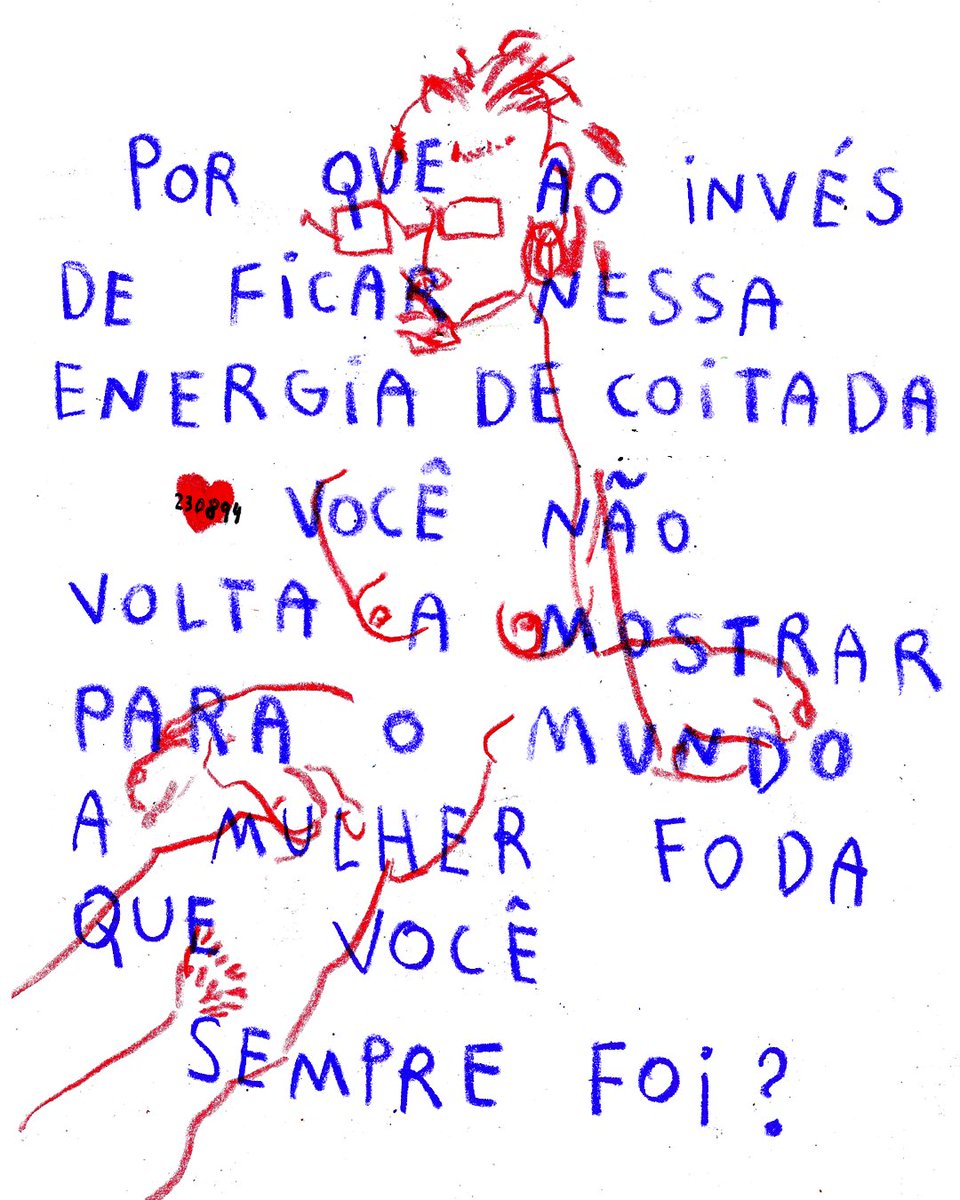 POR QUE AO iNVÉS
DE FiCAR NESSA
ENERGiA DE COiTADA
230894
VOCÊ NÃO
VOLTA A MOSTRAR
PARA O MUNDO
A MULHER FODA
QUE VOCÊ
SEMPRE FOi?